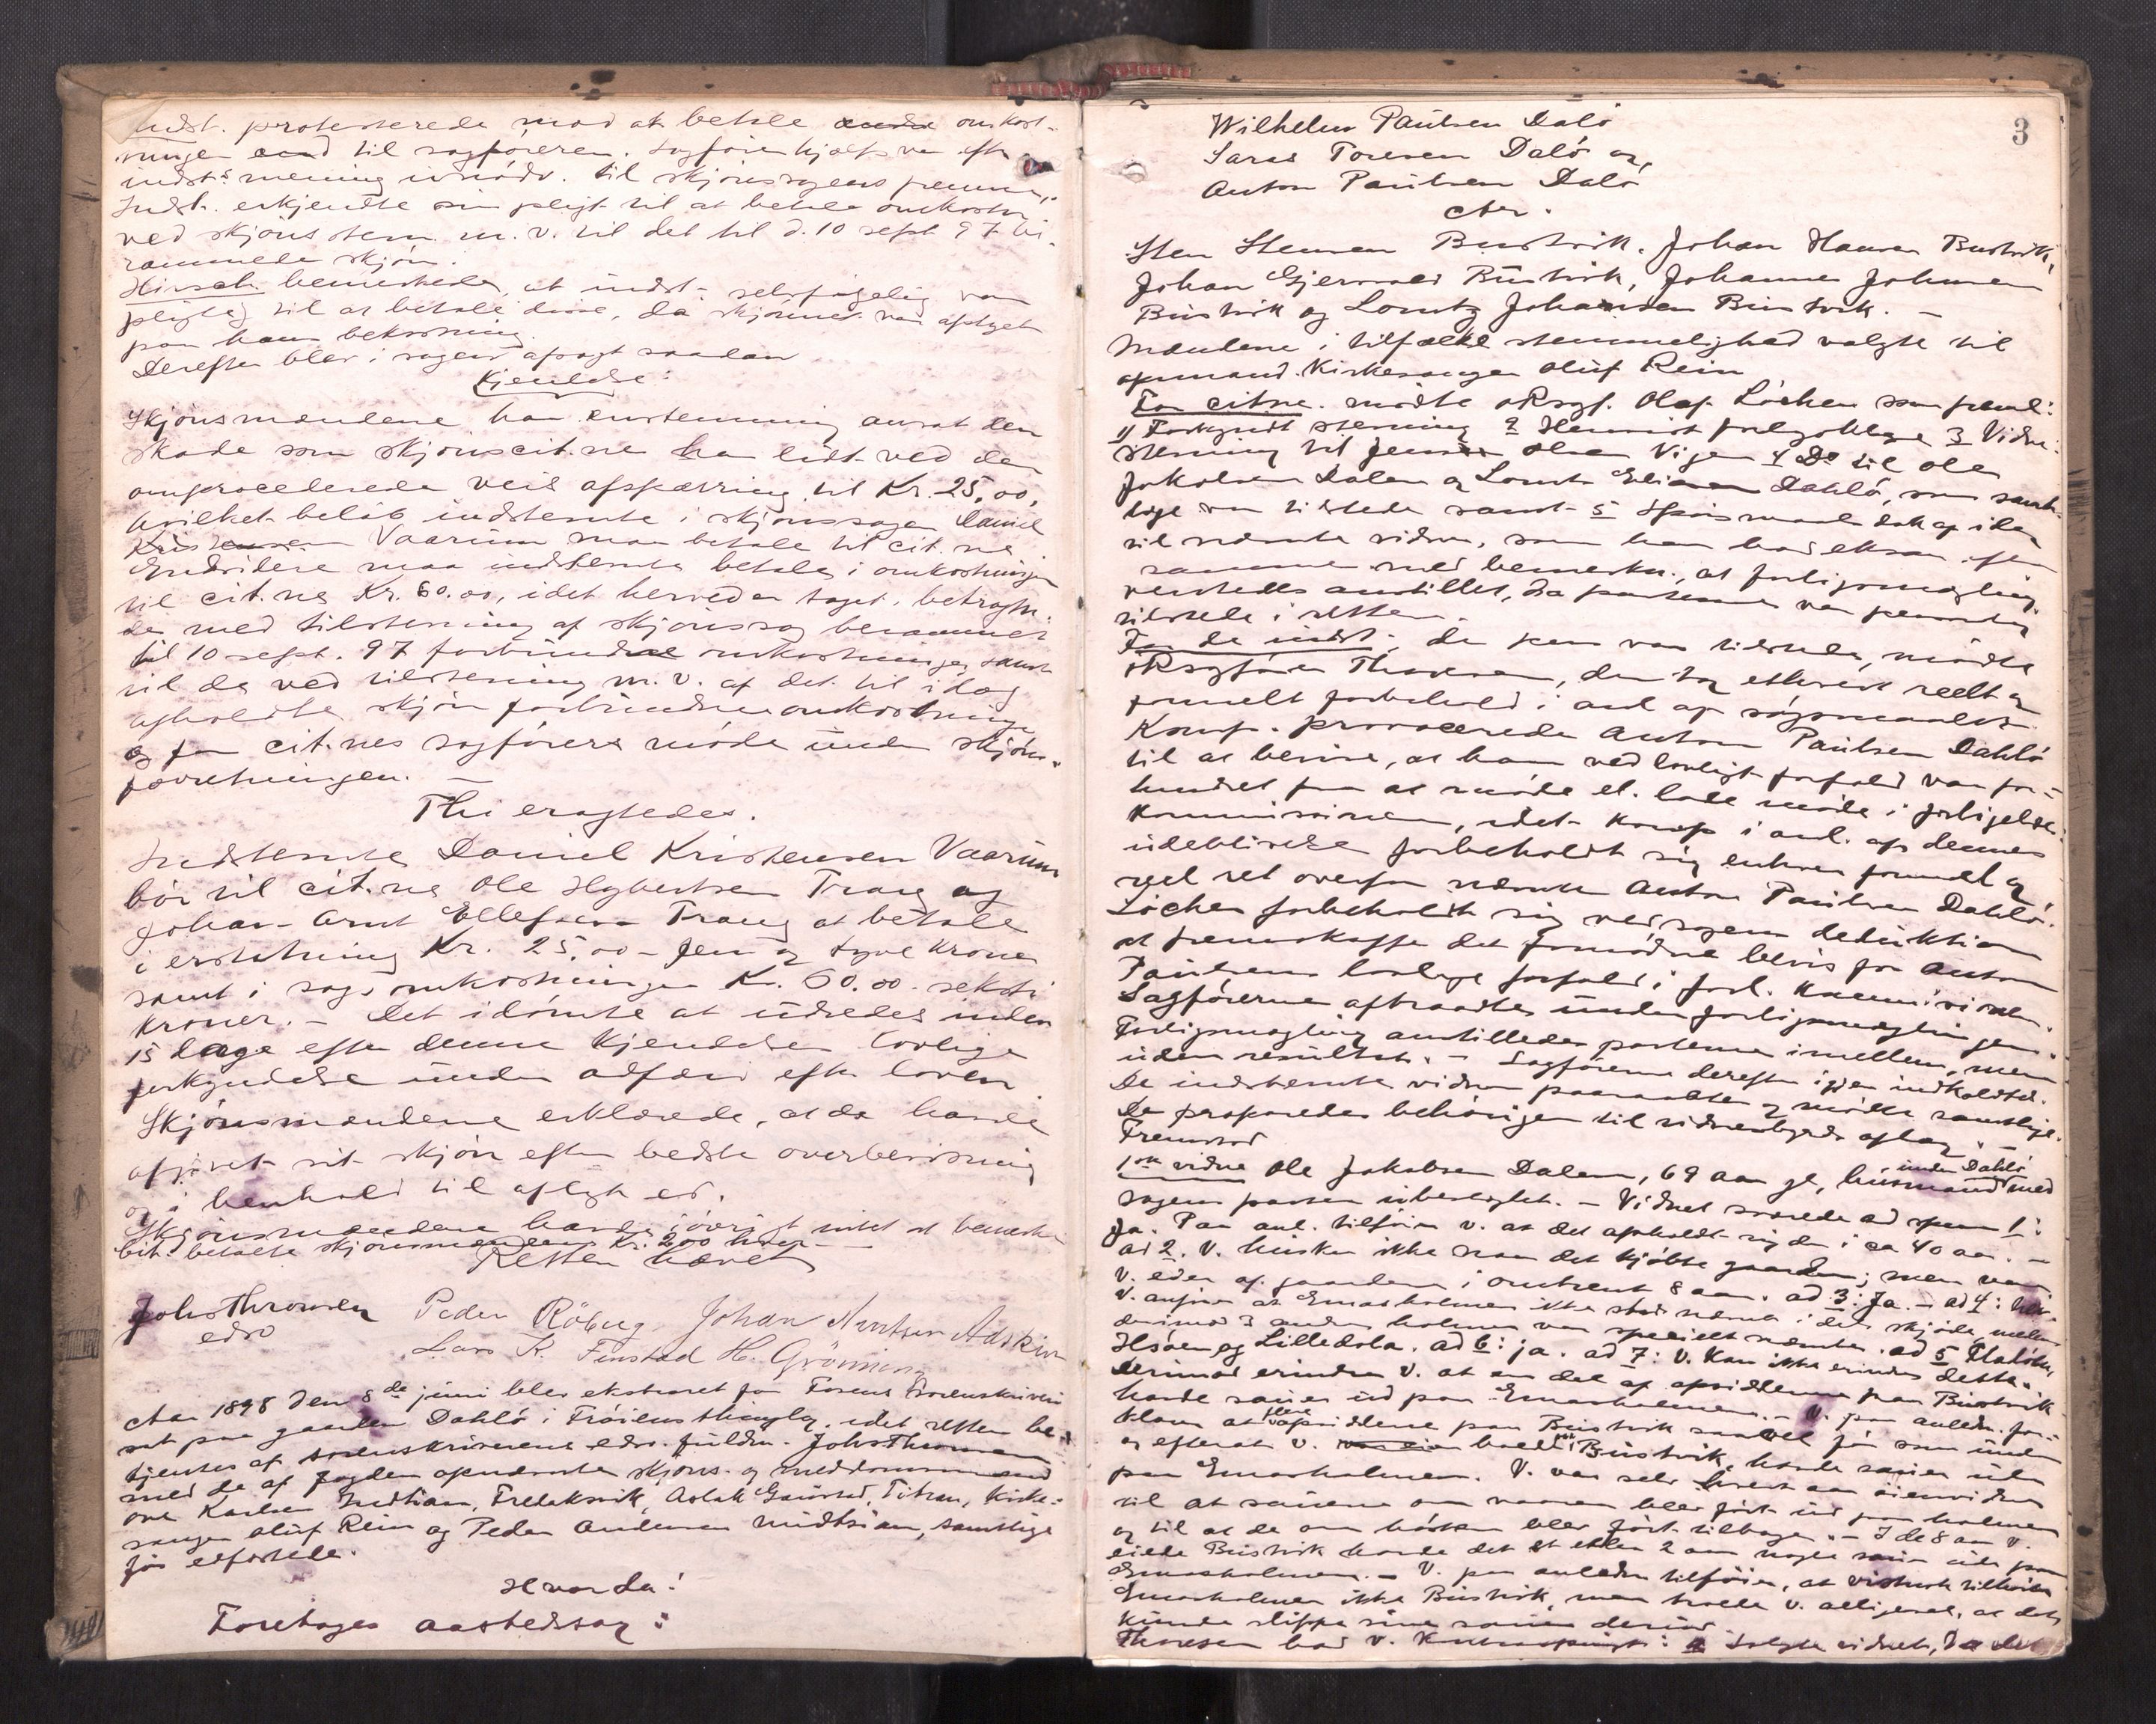 Indst. protesterede mod at betale omkost-
ninger til sagføreren. Sagførerhjælp var efter
indst.s mening unødv. til skjønssagens fremme.
Indst. erkjendte sin pligt til at betale omkostn.
ved skjønsstevn. m. v. til det til d. 10 sept 97 be-
rammede skjøn.
Hirsch bemerkede, at indst. selvfølgelig var
pligtig til at betale disse, da skjønnet var aflyst
paa hans bekostning.
Derefter blev i sagen afsagt saadan
Kjendelse:
Skjønsmændene har enstemmig ansat den
skade som skjønscit.ne har lidt ved den
omprocederede veis afspærring til Kr. 25,00,
hvilket beløb indstevnte i skjønssagen Daniel
Kristensen Vaarum maa betale til cit.ne.
Endvidere maa indstevnte betale i omkostninger
til cit.ne Kr. 60.00, idet herved er taget i betragtn.
de med tilstevning af skjønssag berammet
til 10 sept. 97 forbundne omkostninger, samt
til de ved tilstevning m. v. af det til idag
afholdte skjøn forbundne omkostninger
og for cit.nes sagførers møde under skjøns-
forretningen. —
Thi eragtedes.
Indstevnte Daniel Kristensen Vaarum
bør til cit.ne Ole Hybertsen Trang og
Johan Arnt Ellefsen Trang at betale
i erstatning Kr. 25,00 - fem og tyve kroner
samt i sagsomkostninger Kr. 60.00 - seksti
kroner. — Det idømte at udredes inden
15 dage efter denne kjendelses lovlige
forkyndelse under adfærd efter loven
Skjønsmændene erklærede, at de havde
afgivet sit skjøn efter bedste overbevisning
og i henhold til aflagt ed.
Skjønsmændene havde iøvrigt intet at bemerke
Cit. betalte skjønsmændene Kr. 2,00 hver
Retten hævet
Johs Thronsen
edsv
Peder Röberg Johan Arntsen
Lars K. Finstad H. Grönning
Aar 1898 den 8de juni blev ekstraret for Fosens sorenskriveri
sat paa gaarden Dahlö i Fröiens thinglag, idet retten be-
tjentes af sorenskriverens edsv. fuldm. Johs Thronsen
med de af fogden opnævnte skjøns- og meddomsmænd
Ove Karlsen Inntian, Fredeksvik, Aslak Gaustad, Titran, Kirke-
sanger Oluf Rein og Peder Andersen Midtsian, samtlige
før edfæstede.
Hvorda:
Foretages aastedssag:
3
Wilhelm Paulsen Dalö
Lars Toresen Dalö og
Anton Paulsen Dalö
ctr.
Sten Stensen Bustvik, Johan Hansen Bustvik,
Johan Gjermoes Bustvik, Johannes Johnsen
Bustvik og Lorntz Johansen Bustvik. —
Mændene i tilfælde stemmelighed valgte til
opmand Kirkesanger Oluf Rein
For citne. mødte oRsgf. Olaf Löchen som freml:
1) Forkyndt stevning 2 Henvist forligsklage 3 Vidne-
stevning til Jens Olsen Vigen 4 Do til Ole
Jakobsen Dalen og Lornts Eliasen Dahlö, som samt-
lige var tilstede samt 5 Spørsmaal dat. af idag
til nævnte vidner, som han bad eksam. efter
samme med bemerkn., at forligsmægling
verstedes anstillet, da parterne var personlig
tilstede i retten.
For de indst., der pers. var tilstede, mødte
oRsgfører Thoresen, der tog ethvert reelt og
formelt forbehold i anl. af søgsmaalet.
Komp. provocerede Anton Paulsen Dahlö
til at bevise, at han ved lovligt forfald var for-
hindret fra at møde el. lade møde i forligelses-
kommissionen, idet komp i anl. af dennes
udeblivelse forbeholdt sig enhver formel og
reel ret overfor nævnte Anton Paulsen Dahlö.
Löchen forbeholdt sig ved sagens deduktion
at fremskaffe det fornødne bevis for Anton
Paulsens lovlige forfald i forl. kommissionen.
Sagførerne aftraadte under forligsmæglingen.
Forligsmægling anstilledes parterne imellem, men
uden resultat. — Sagførerne derefter igjen indkaldtes.
De indstevnte vidner paaraabtes og mødte samtlige.
De præparedes behørigen til vidneedens aflæg. —
Fremstod
1ste vidne Ole Jakobsen Dalen, 69 aar gl., husmand under Dahlö med
sagens parter ubeslegtet. — Vidnet svarede ad spm 1:
Ja. Paa anl. tilføier v. at det opholdt sig der i ca 40 aar. —
ad 2. V. husker ikke naar det kjøbte gaarden; men var
V. eier af gaarden i omtrent 8 aar. ad 3: Ja. — ad 4:
V. anfører at Emasholmen ikke stod nævnt i det skjøde, mens
derimod 3 andre holmer var specielt nævnte. ad 5
Hsöen og Lilledola. ad 6: ja. ad 7: V. kan ikke erindre dette.
Derimod erindrer V. at en del af opsidderne paa Bustvik
havde sauer ud paa Emasholmen. — V. paa anledn. for-
klarer at opsidderne paa Bustvik saavel før som under
og efterat v. boede i Bustvik, havde sauer ude
paa Emasholmen. V. var selv hvert aar øienvidne
til at sauerne om vaaren blev ført ud paa holmen
og til at de om høsten blev ført tilbage. — I de 8 aar V.
eiede Bustvik havde det et eller 2 aar nogle sauer ude paa
Emasholmen. — V. paa anledn tilføier, at tilhørte
Emasholmen ikke Bustvik, men troede v. alligevel, at det
kunde slippe sine sauer derud
Thoresen bad v. kontraspurgt: a Solgte vidnet, da det